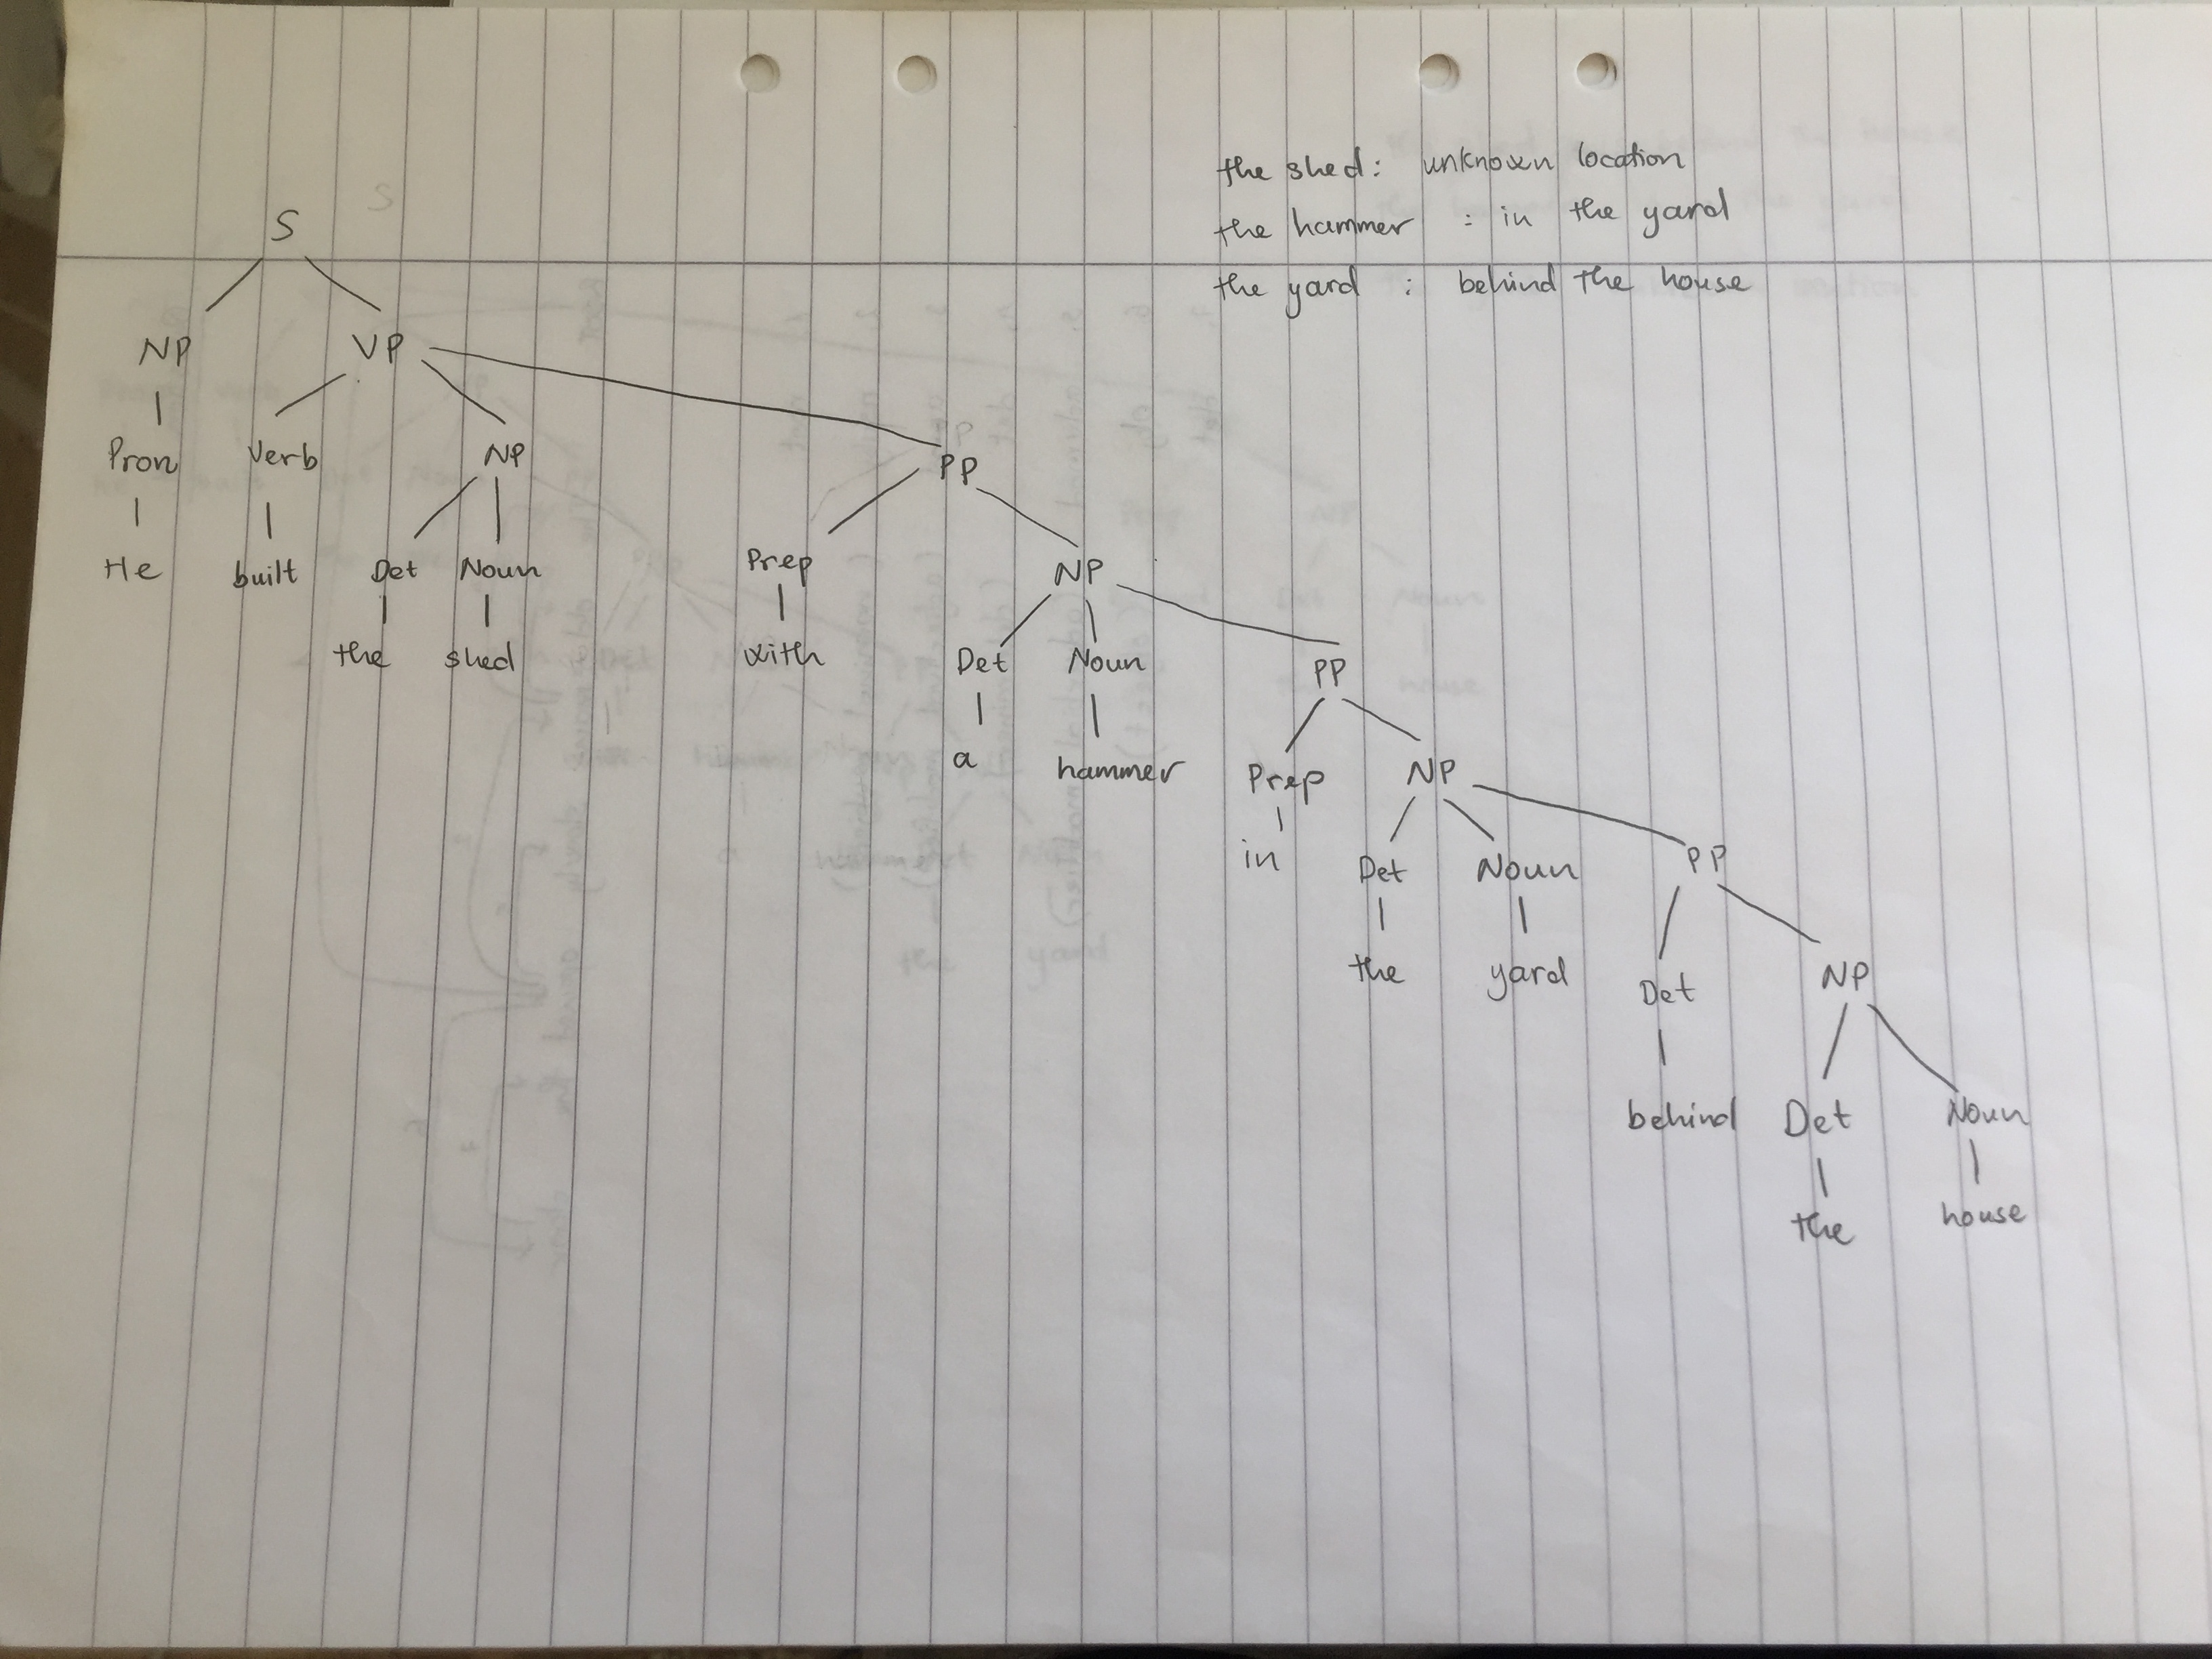 the shed: unknown location
the hammer : in the yard
the yard : behind the house
S
NP VP
Pron Verb NP PP
He built Det Noun Prep NP
the shed with Det Noun PP
a hammer Prep NP
in Det Noun PP
the yard Det NP
behind Det Noun
the house